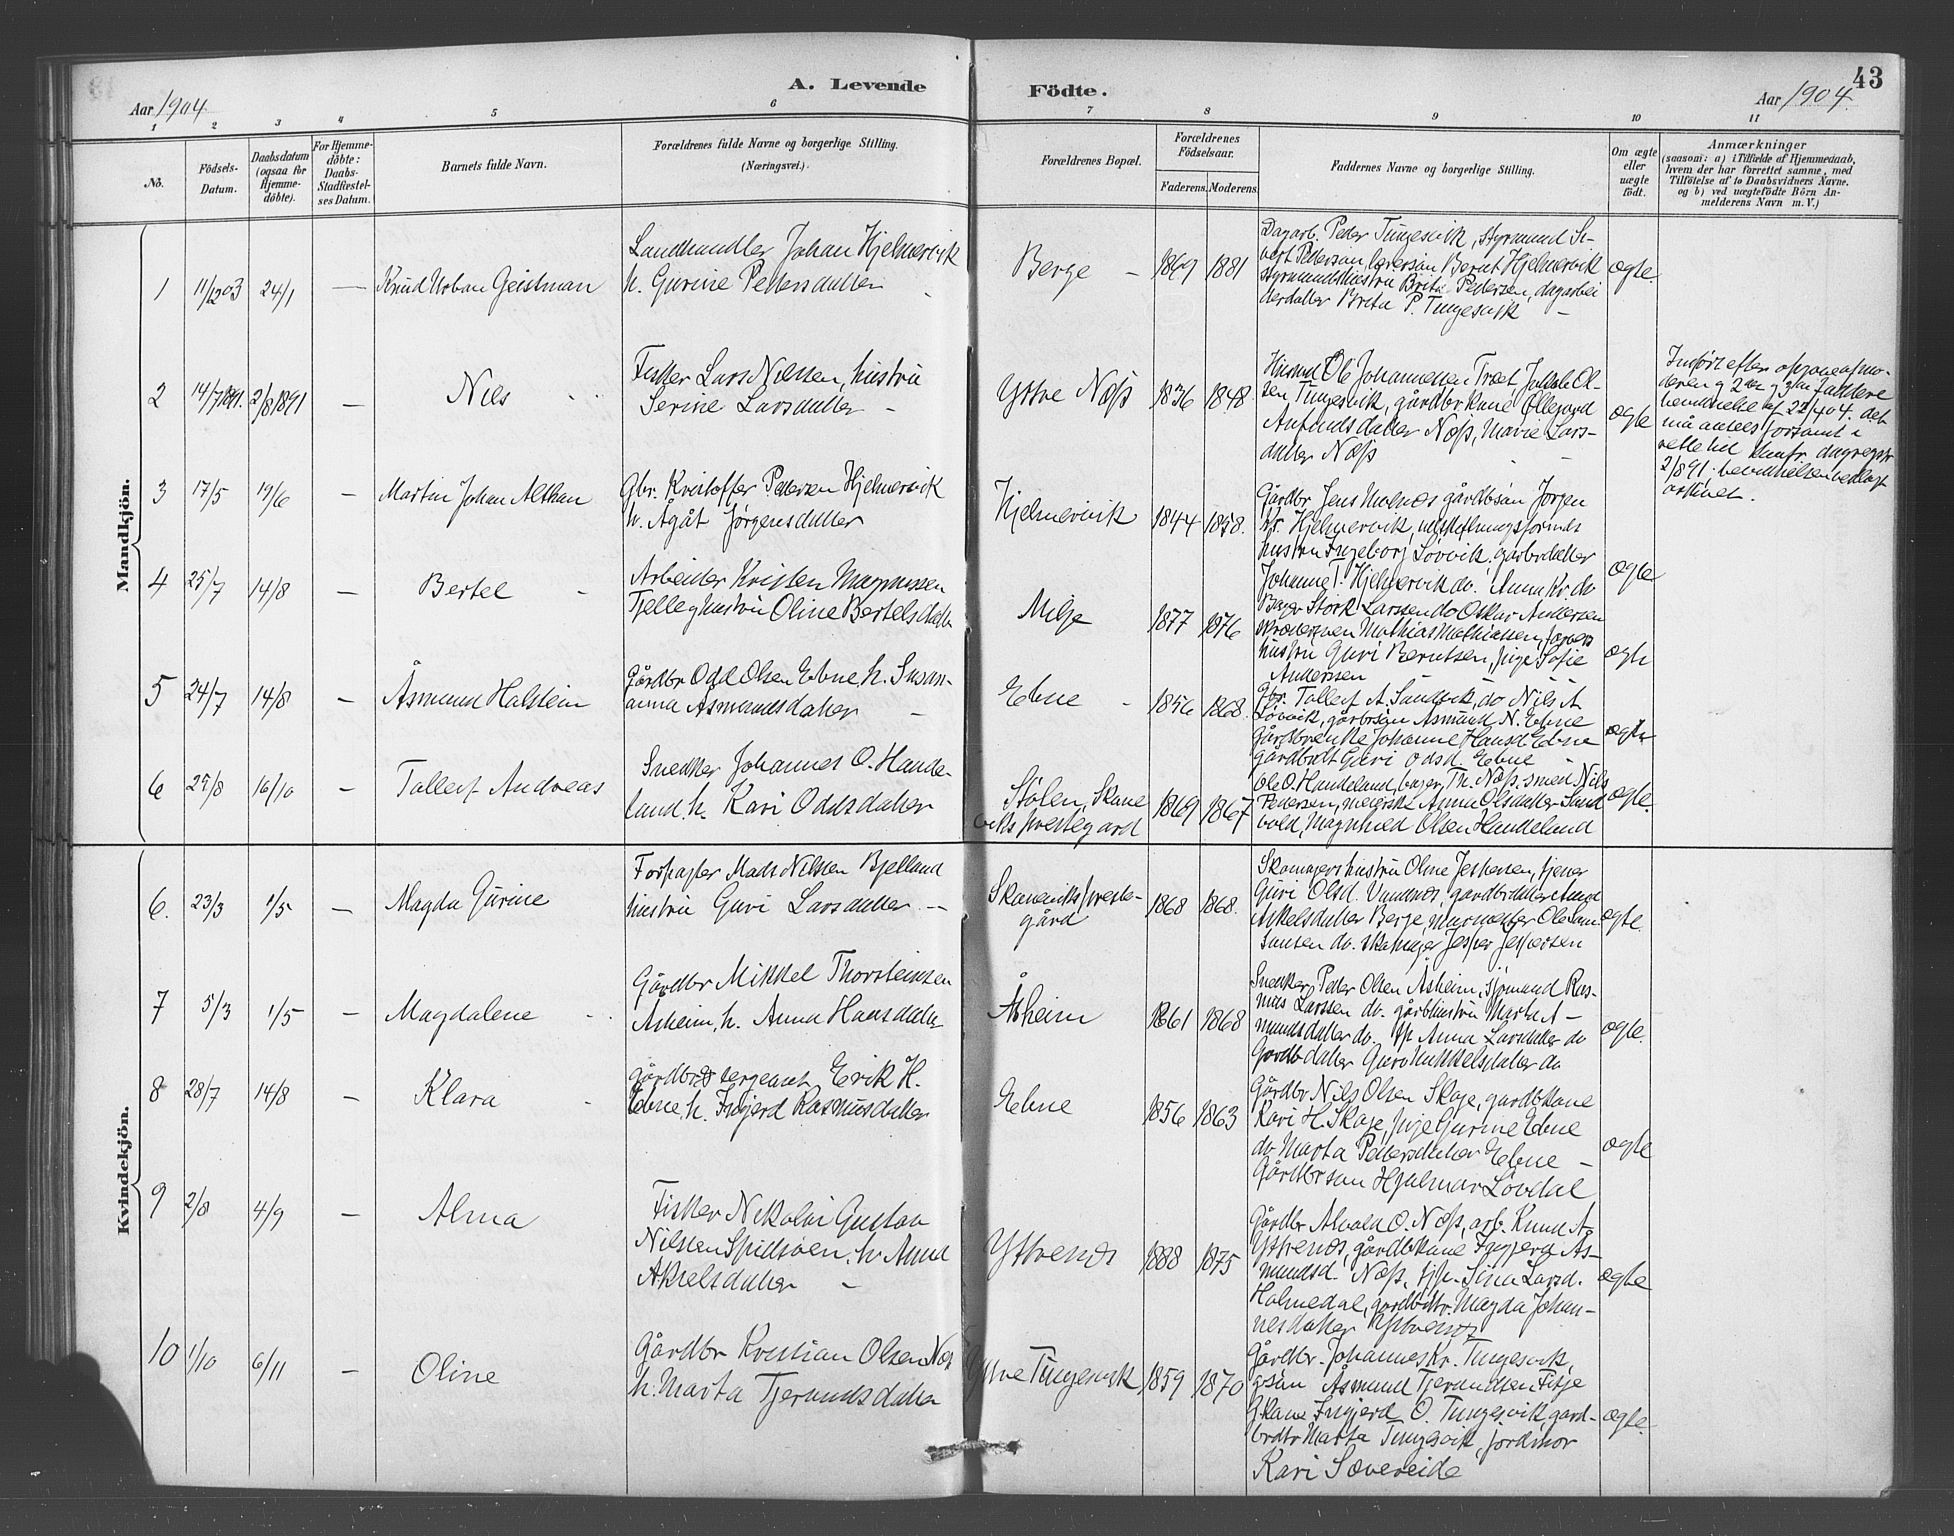 A. Levende
Födte.
43
Aar 1904
Aar 1904.
1 2 3 4 5 6 7 8 9 10 11
No.
Födsels-
Datum.
Daabsdatum
(ogsaa for
Hjemme-
döbte).
For Hjemme-
döbte:
Daabs-
Stadfæstel-
ses Datum.
Barnets fulde Navn.
Forældrenes fulde Navne og borgerlige Stilling.
(Næringsvei.)
Forældrenes Bopæl.
Forældrenes
Födselsaar.
Faderens. Moderens.
Faddernes Navne og borgerlige Stilling.
Om ægte
eller
uægte
födt.
Anmærkninger
(saasom: a) i Tilfælde af Hjemmedaab,
hvem der har forrettet samme, med
Tilföielse af to Daabsvidners Navne,
og b) ved uægtefödte Börn An-
melderens Navn m. V.)
Mandkjön.
1 11/12 03 24/1 — Knud Urban Geistman
Landhandler Johan Hjelmervik
h. Gurine Pedersdatter
Berge - 1869 1881
Dagarb. Peder Tungesvik, styrmand Si-
vert Pedersen, Bernt Hjelmervik
styrmandshustru Brita Pedersen, dagarbei
derdatter Brita P. Tungesvik -
ægte.
2 14/7 1891. 2/8 1891 — Nils
Fisker Lars Nilssen, hustru
Serine Larsdatter -
Ystre Næss 1836 1848
Husmd Ole Johannessen Træt, Ol-
sen Tungesvik, gårdbrkone Ollegard
Amundsdatter Næss, Marie Lars-
datter Næss
ægte
Indført efter opgave af mo-
deren g 2den g 3die faddere
bevidnelse af 22/4 04. det
må antages forsømt i
rette tid
2/8 91. bevidnelsen vedlagt
arkivet.
3 17/5 19/6 — Martin Johan Althan
Gbr. Kristoffer Pedersen Hjelmervik
h. Agåt Jørgensdatter
Hjelmervik 1844 1858.
Gårdbr Jens Molnes gårdbsøn Jørgen
Kr. Hjelmervik,
hustru Ingeborg Løvvik, gårbrdatter
Johanne T. Hjelmervik do. Anna Kr. do
ægte
4 25/7 14/8 — Bertel
Arbeider Kristen Magnussen
Tjelle g hustru Oline Bertelsdatter
Milje 1877 1876
Bager Størk Larssen do Oskar Andersen
Mathias Mathiassen,
hustru Guri Berntsen, pige Sofie
Andersen
ægte
5 24/7 14/8 — Åsmund Halstein
Gårdbr Odd Olsen Ebne h. Susan-
anna Åsmundsdatter -
Ebne - 1856 1868.
Gbr. Tollert A. Sandvik, do Nils A.
Løvvik, gårbrsøn Åsmund N. Ebne
Gårdbrenke Johanne Hansd. Ebne
gardbdtt Guri Odsd. Ebne -
ægte
6 29/8 16/10 — Tollert Andreas
Snedker Johannes O. Hande-
land h. Kari Oddsdatter
Stølen, Skane
viks prestegard 1869 1867
Ole O. Handeland, bager Th. Næss. smed Nils
Pedersen, meierske Anna Olsdatter Sand
vold, Magnhild Olsen Handeland
ægte.
Kvindekjön.
6. 23/3 1/5 — Magda Gurine
Forpagter Mads Nilssen Bjelland
hustru Guri Larsdatter -
Skaneviks preste-
gård 1868 1868.
Skomagerhustru Oline Jespersen, tjener
Guri Olsd. Vannes, gardbrdatter
Askelsdatter Berge, Ole Sam-
sonsen do. skomager Jesper Jespersen
ægte.
7 5/3 1/5 — Magdalene
Gårdbr Mikkel Thorsteinsen
Åsheim, h. Anna Hansdatter
Åsheim 1861 1868
Snedker Peder Olsen Åsheim, sjømand Ras-
mus Larssen do. gårbhustru Marta A-
mundsdatter do. tjp. Anna Larsdatter do
Gardbdatter Guro Mikkelsdatter do
ægte.
8 28/7 14/8 — Klara
gårdbr & sergeant Erik H.
Ebne h. Ingjerd Rasmusdatter
Ebne 1856 1863
Gårdbr Nils Olsen Skaje, gardbkone
Kari H. Skaje, pige Gurine Ebne
do Marta Pedersdatter Ebne -
Gårdbrsøn Hjalmar Løvdal
ægte
9 2/8 4/9 — Alma
Fisker Nikolai Gustav
Nilssen Spidsøen h. Anna
Akselsdatter -
Ystrenes 1888 1875
Gårdbr Alvald O. Næss, arb. Knud A
Ystrenes, gårdbkone Ingjerd As-
mundsd. Næss, tjp. Sina Larsd.
Holmedal, gardbdtr. Magda Johan-
nesdatter Ystrenes
ægte
10 1/10 6/11 — Oline
Gårdbr Kristian Olsen Næs
h. Marta Tjerandsdatter
Ystre Tungesvik 1859 1870
Gårdbr. Johannes Kr. Tungesvik,
gsøn Åsmund Tjerandsen Fitje
Gkone Ingjerd O. Tungesvik, gard-
brdtr Marta Tungesvik, jordmor
Kari Sævereide
ægte.